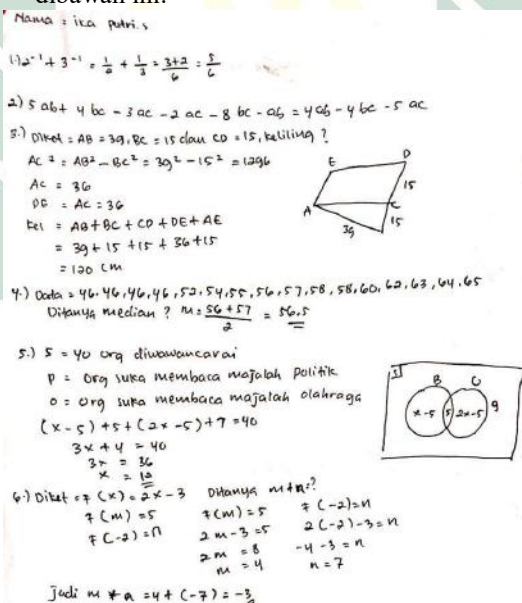 dibawah ini:
Nama : ika putri.s
1.) 2⁻¹ + 3⁻¹ = 1/2 + 1/3 = 3+2/6 = 5/6
2) 5 ab + 4 bc - 3 ac - 2 ac - 8 bc - ab = 4ab - 4 bc - 5 ac
3.) Diket = AB = 39, BC = 15 dan CD = 15, keliling ?
AC² = AB² - BC² = 39² - 15² = 1296
AC = 36
DE = AC = 36
Kel = AB + BC + CD + DE + AE
= 39 + 15 + 15 + 36 + 15
= 120 cm
E D
15
A C
39 15
4.) Data = 46, 46, 46, 46, 52, 54, 55, 56, 57, 58, 58, 60, 62, 63, 64, 65
Ditanya median ? M = 56+57/2 = 56.5
5.) S = 40 org diwawancarai
P = org suka membaca majalah politik
O = org suka membaca majalah olahraga
(x - 5) + 5 + (2x - 5) + 7 = 40
3x + 4 = 40
3x = 36
x = 12
S B O
x-5 5 2x-5 9
6.) Diket = f (x) = 2x - 3 Ditanya m+n=?
f (m) = 5 f (m) = 5 f (-2) = n
f (-2) = n 2m - 3 = 5 2(-2) - 3 = n
2m = 8 -4 - 3 = n
m = 4 n = 7
Jadi m + n = 4 + (-7) = -3